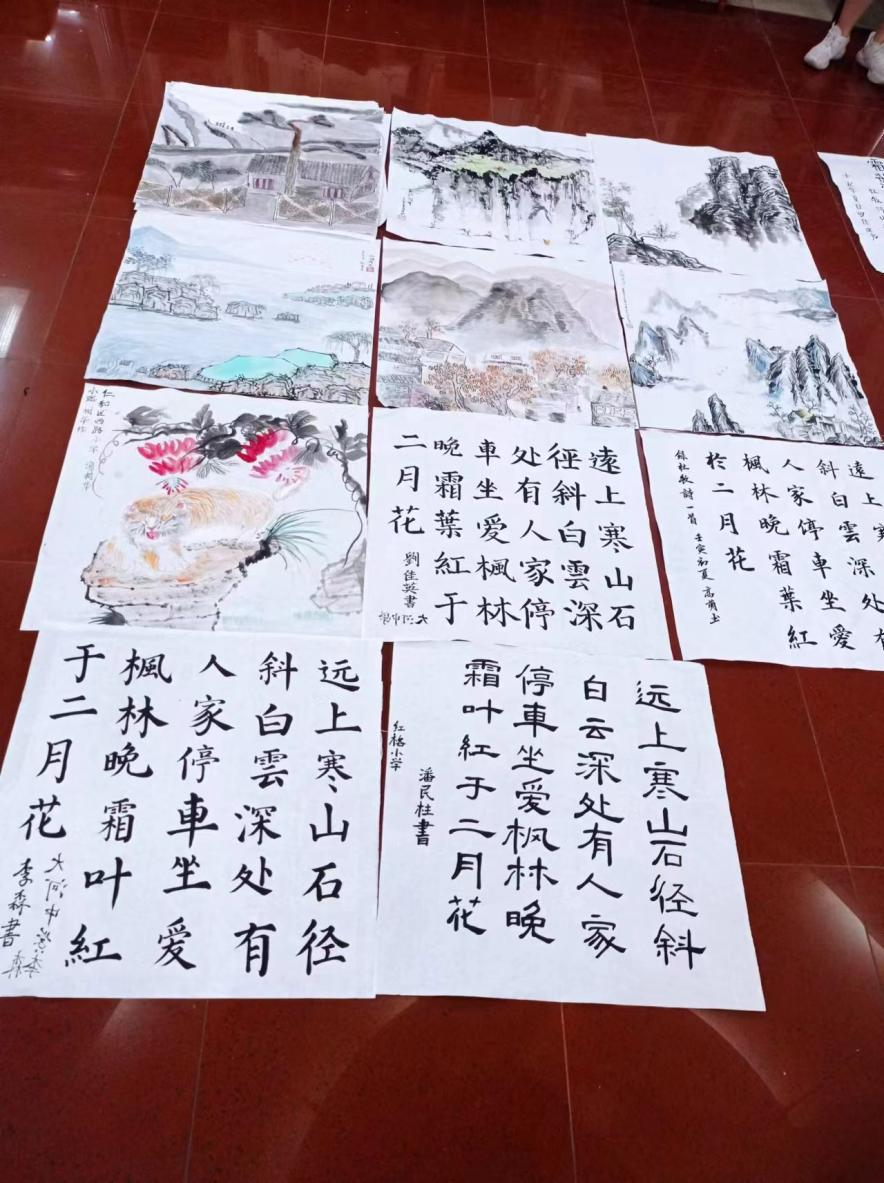 仁和区西路小学
遠上寒山石
徑斜白雲深
处有人家停
車坐愛楓林
晚霜葉紅于
二月花
劉佳英書
大河中学
遠上寒
斜白雲深处有
人家停車坐愛
楓林晚霜葉紅
於二月花
錄杜牧詩一首 壬寅初夏
远上寒山石径
斜白雲深处有
人家停車坐愛
楓林晚霜叶紅
于二月花
大河中学
李森書
远上寒山石径斜
白云深处有人家
停車坐爱枫林晚
霜叶紅于二月花
潘民柱書
红格小学